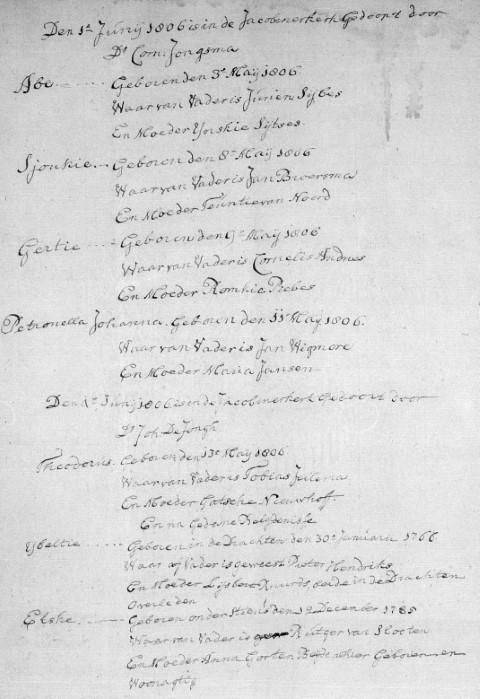 Den 1e Junij 1806 is in de Jacobinerkerk Gedoopt door
Ds Corn: Jongsma
Abe Geboren den 3e Maij 1806
Waar van Vader is Jurien Sijbes
En Moeder Ynskie Sijtses
Sjoukie Geboren den 8e Maij 1806
Waar van Vader is Jan Buwersma
En Moeder Teuntie van Noord
Gertie Geboren den 9e Maij 1806
Waar van Vader is Cornelis Andries
En Moeder Romkie Piebes
Petronella Johanna Geboren den 11e Maij 1806
Waar van Vader is Jan Wigmore
En Moeder Maria Jansen
Den Junij 1806 is in de Jacobinerkerk Gedoopt door
Ds Joh De Jongh
Theodorus Geboren den 13e Maij 1806
Waar van Vader is Tobias
En Moeder Gatsche Nieuwhoff
En na Gedane Belijdenisse
Ybeltie Geboren in de Drachten den 30e Januarij 1766
Waar af Vader is geweest Pieter Hendriks
En Moeder Lijsbert Ruurds, beide in de Drachten
Overleden
Elske Geboren onder Stiens den 12 December 1785
Waar van Vader is Rutger van Slooten
En Moeder Anna Gorten Geboren en
Woonagtig